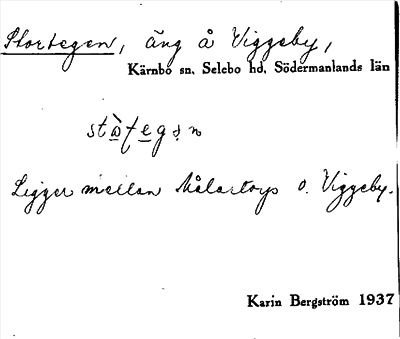 Stortegen, äng å Viggeby,
Kärnbo sn, Selebo hd, Södermanlands län
Ligger mellan Målartorp o. Viggeby.
Karin Bergström 1937